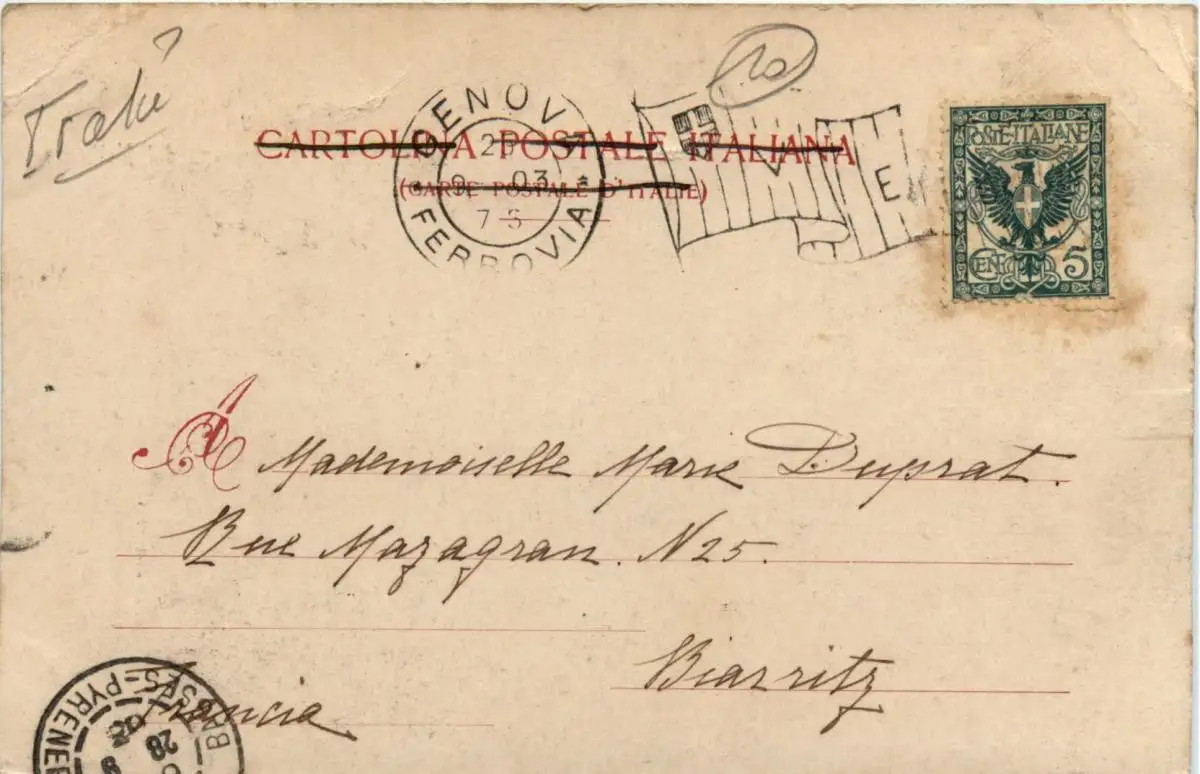 Italie
20
CARTOLINA POSTALE ITALIANA
(CARTE POSTALE D'ITALIE)
GENOVA
9 03
FERROVIA
V E
POSTE·ITALIANE
CENT 5
A Mademoiselle Marie Duprat.
Rue Mazagran. N 25.
Biarritz
Francia
BASSES-PYRENEE
28